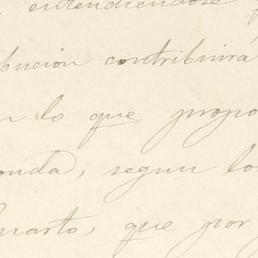 entendiendose
bucion contribuirá
lo que propo
onda, segun lo
uarto, que por